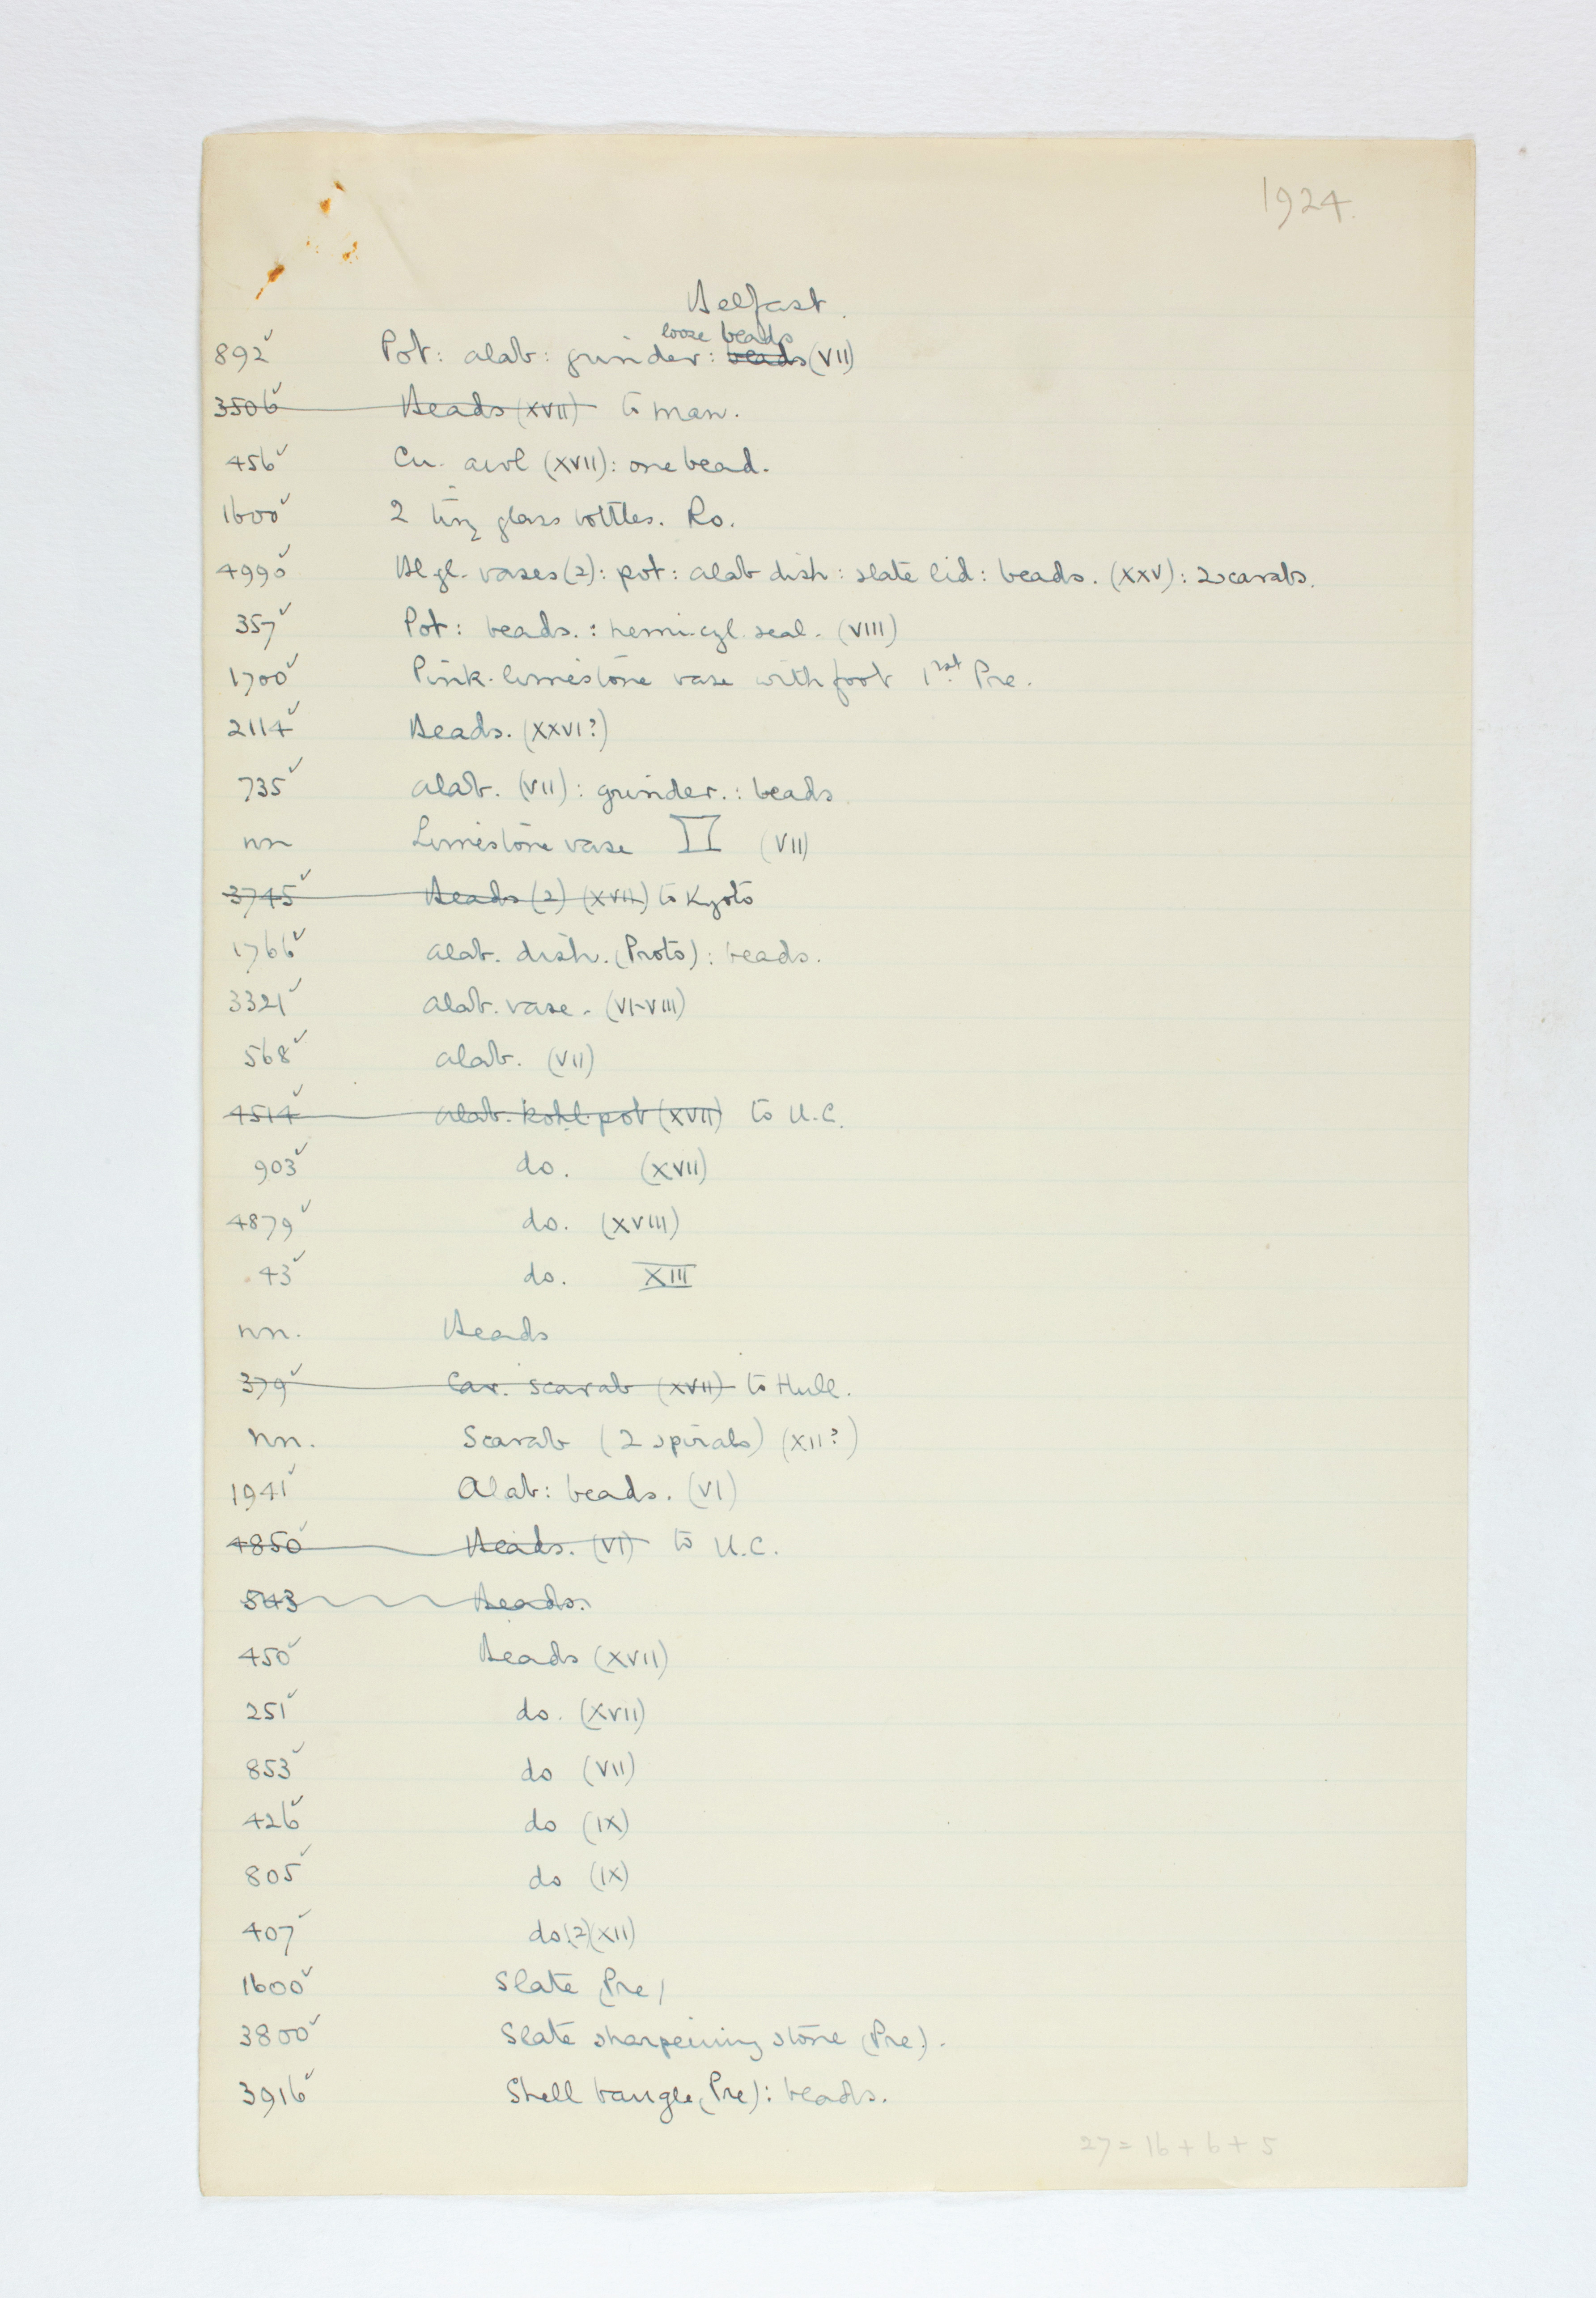 1924.
Belfast.
loose beads
892 ✓ Pot: alab: grinder: beads (VII)
3506 ✓ Beads (XVII) to Man.
456 ✓ Cu. awl (XVII): one bead.
1600 ✓ 2 tiny glass bottles. Ro.
4990 ✓ Bl gl. vases (2): pot: alab dish: slate lid: beads. (XXV): 2 scarabs.
357 ✓ Pot: beads.: hemi-cyl. seal. (VIII)
1700 ✓ Pink limestone vase with foot 1st Pre.
2114 ✓ Beads. (XXVI?)
735 ✓ Alab. (VII): grinder.: beads
nn Limestone vase (VII)
3745 ✓ Beads (2) (XVII) to Kyoto
1766 ✓ Alab. dish. (Proto): beads.
3321 ✓ Alab. vase. (VI-VIII)
568 ✓ Alab. (VII)
4514 ✓ Alab. kohl pot (XVII) to U.C.
903 ✓ do. (XVII)
4879 ✓ do. (XVIII)
43 ✓ do. XIII
nn. Beads
379 ✓ Car. scarab (XVII) to Hull.
nn. Scarab (2 spirals) (XII?)
1941 ✓ Alab: beads. (VI)
4850 ✓ Beads. (VI) to U.C.
543 Beads.
450 ✓ Beads (XVII)
251 ✓ do. (XVII)
853 ✓ do (VII)
426 ✓ do (IX)
805 ✓ do (IX)
407 ✓ do (2) (XII)
1600 ✓ Slate (Pre)
3800 ✓ Slate sharpening stone (Pre).
3916 ✓ Shell bangle (Pre): beads.
27 = 16 + 6 + 5